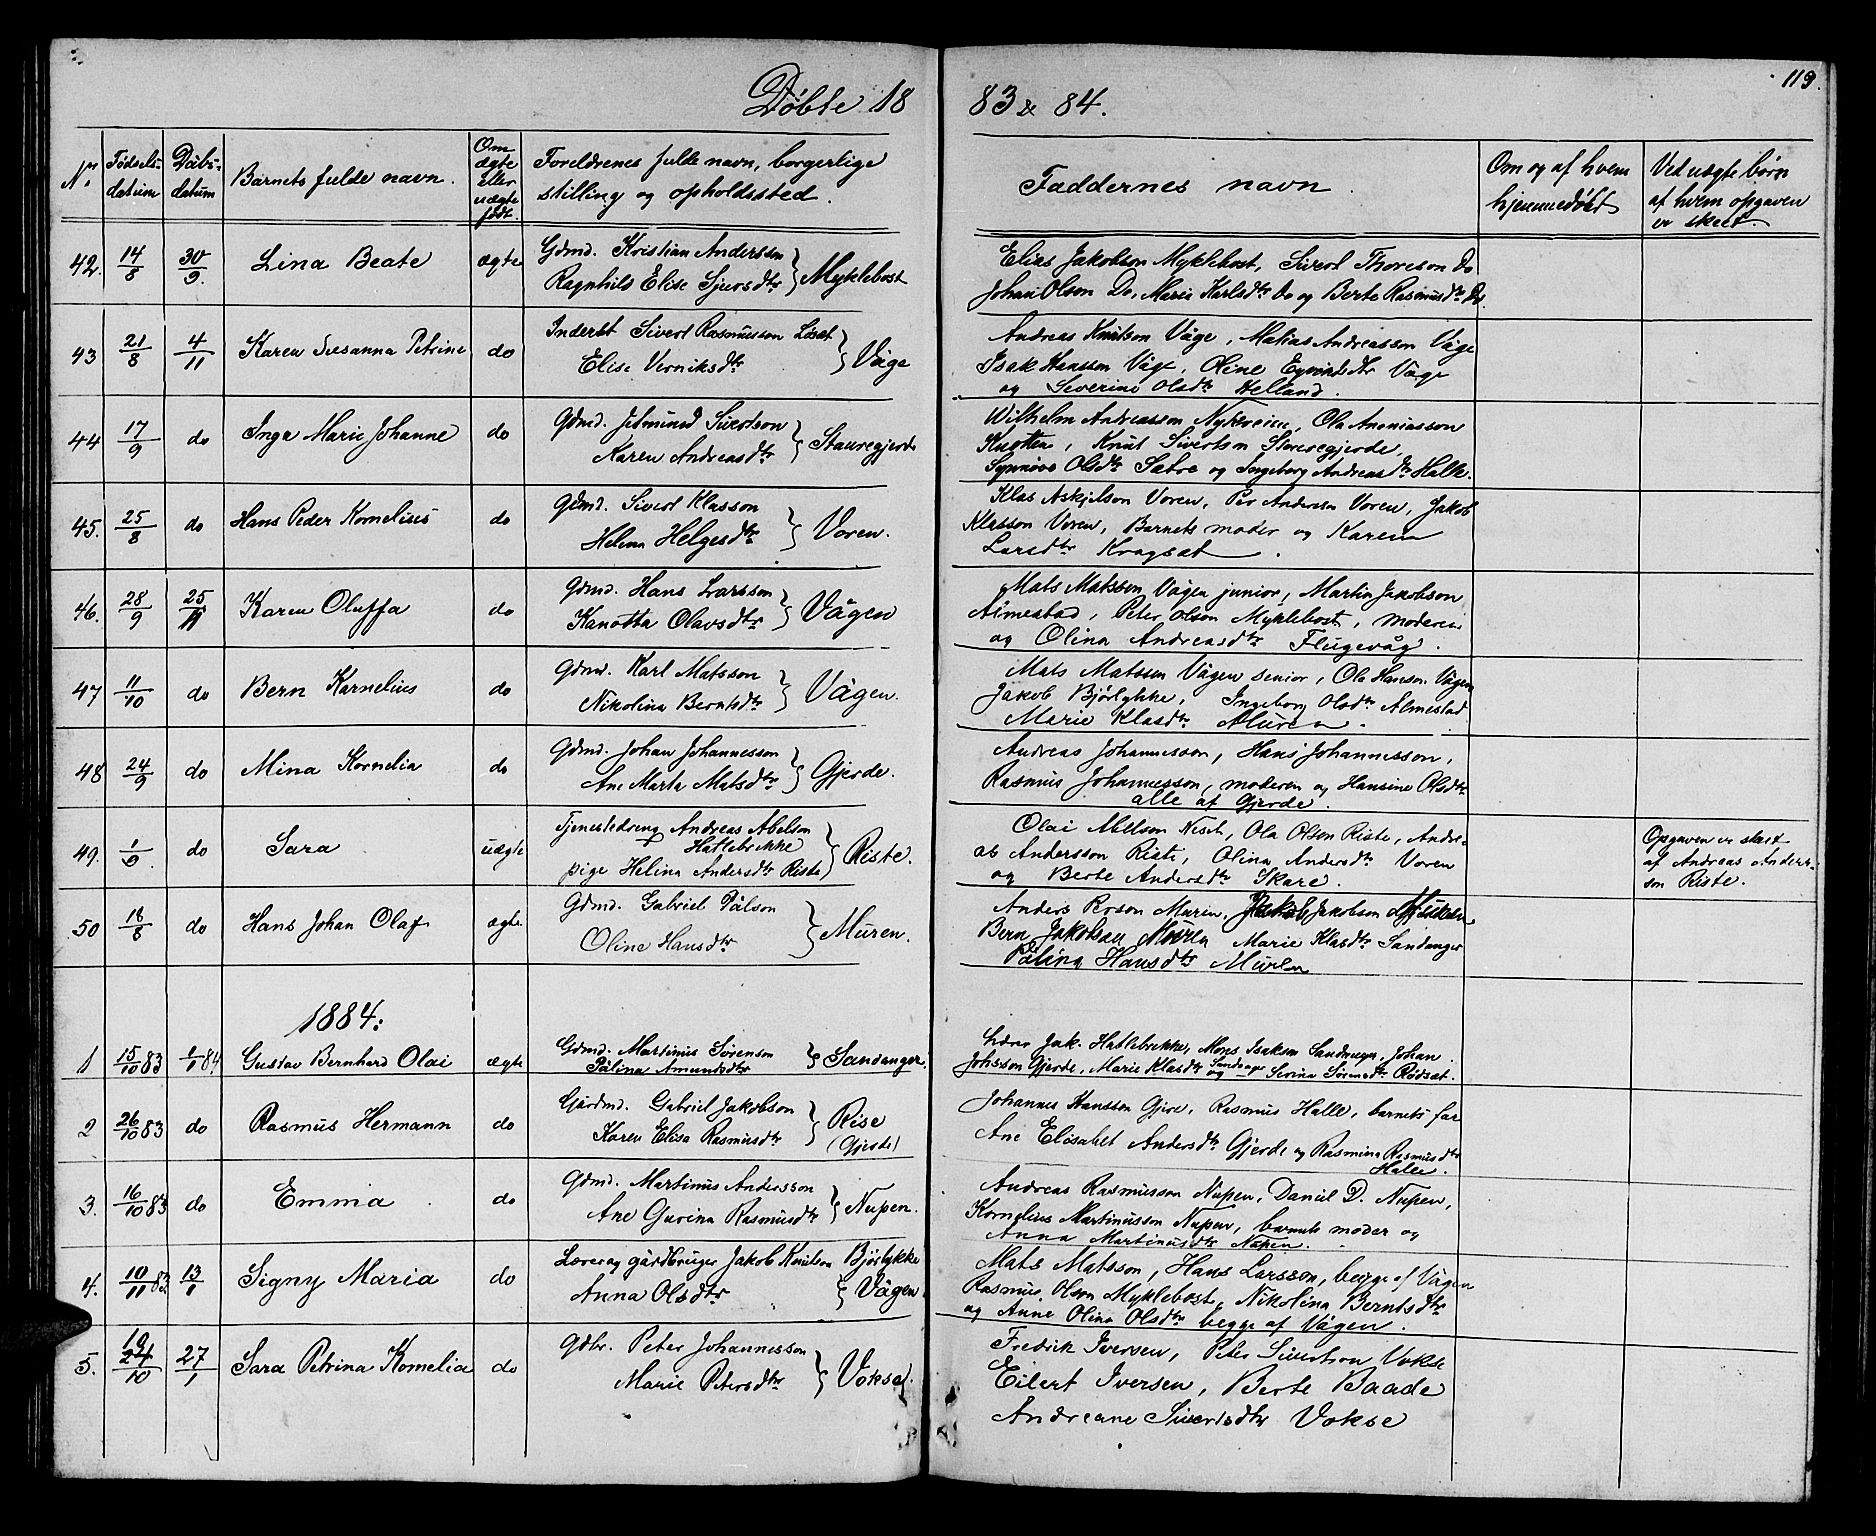 119.
Døbte 18 83 & 84.
Nr. Fødsels-datum Dåbs-datum Barnets fulde navn. Om ægte eller uægte født. Forældrenes fulde navn, borgerlige stilling og opholdssted. Faddernes navn. Om og af hvem hjemmedøbt Ved uægte børn af hvem opgaven er skeet.
42. 14/8 30/9. Lina Beate ægte Gdmd. Kristian Andersson
Ragnhild Elise Sjursdtr } Myklebost
Elias Jakobson Myklebost, Sivert Thoreson Do
Johan Olson Do, Marie Karlsdtr Do og Berte Rasmusdtr Do
43 21/8 4/11 Karen Susanna Petrine do Inderst Sivert Rasmusson
Elise Verniksdtr } Våge
Andreas Knutson Våge, Matias Andreasson Våge
Isak Hansson Våge, Oline Eyvindsdtr Våge
og Severine Olsdtr Helland.
44 17/9 do Inga Marie Johanne do Gdmd. Jetmund Sivertson
Karen Andreasdtr } Stauregjerde
Wilhelm Andreasson Nykreim, Ola Ananiasson
Knotten, Knut Sivertson Storegjerde,
Synnøve Olsdtr Sætre og Ingeborg Andreasdtr Halle.
45. 25/8 do Hans Peder Kornelius do Gdmd. Sivert Klasson
Helena Helgesdtr } Voren.
Klas Askjelson Voren, Per Anderson Voren, Jakob
Klasson Voren, Barnets moder og Karen
Larsdtr Kragset.
46. 28/9 25/11 Karen Oluffa do Gdmd. Hans Larsson
Kanotta Olavsdtr } Vågen
Mats Matsson Vågen junior, Martin Jacobson
Almestad, Peter Olson Myklebost, moderen
og Olina Andreasdtr Flugevåg.
47 11/10 do Bern Karnelius do Gdmd. Karl Matsson
Nikolina Berntsdtr } Vågen.
Mats Matsson Vågen senior, Ola Hanson Vågen
Jakob Bjørlykke, Ingeborg Olsdtr Almestad
Marie Klasdtr Muren.
48 24/9 do Mina Kornelia do Gdmd. Johan Johannesson
Ane Marta Matsdtr } Gjerde.
Andreas Johannesson, Hans Johannesson,
Rasmus Johannesson, moderen og Hansine Olsdtr
alle af Gjerde.
49. 1/9. do Sara uægte Tjenestedreng Andreas Abelson
Hatlebrekke
pige Helina Andersdtr Riste } Riste.
Olai Nilson Neset, Ola Olson Riste, Andre-
as Andersson Riste, Olina Andersdtr Voren
og Berte Andersdtr Skare.
Opgaven er skeet
af Andreas Anders-
son Riste.
50 18/8 do Hans Johan Olaf ægte Gdmd. Gabriel Pålson
Oline Hansdtr } Muren.
Anders Roson Muren, Jakob Jakobson
Bern Jakobson Muren Marie Klasdtr Sandanger
Pålina Hansdtr Muren
1884:
1 15/10 83 1/1 84 Gustav Bernhard Olai ægte Gdmd. Martinus Sørenson
Pålina Amundsdtr } Sandanger.
Lærer Jak. Hatlebrekke, Mons Isakson Sandanger, Johan
Johsson Gjerde, Marie Klasdtr Sandanger og Serina Sørensdtr Rødset.
2 26/10 83 do Rasmus Hermann do Gårdmd. Gabriel Jakobson
Karen Elisa Rasmusdtr } Rise
(Gjerde)
Johannes Hansson Gjere, Rasmus Halle, barnets far
Ane Elisabet Andersdtr Gjerde og Rasmina Rasmusdtr
Halle.
3. 16/10 83 do Emma do Gdmd. Martinus Andersson
Ane Gurina Rasmusdtr } Nupen.
Andreas Rasmusson Nupen, Daniel D. Nupen,
Kornelius Martinusson Nupen, barnets moder og
Anna Martinusdtr Nupen.
4. 10/11 83. 13/1 Signy Maria do Lærer og gårdbruger Jakob Knutson Bjørlykke
Anna Olsdtr } Vågen
Mats Matsson, Hans Larsson, begge af Vågen
Rasmus Olson Myklebost, Nikolina Berntsdtr
og Anne Olina Olsdtr begge af Vågen.
5. 19/10 27/1 Sara Petrina Kornelia do Gdbr. Peter Johannesson
Marie Petersdtr } Vokse.
Fredrik Iversen, Peter Sivertson Vokse
Eilert Iversen, Berte Baade
Andreane Sivertsdtr Vokse